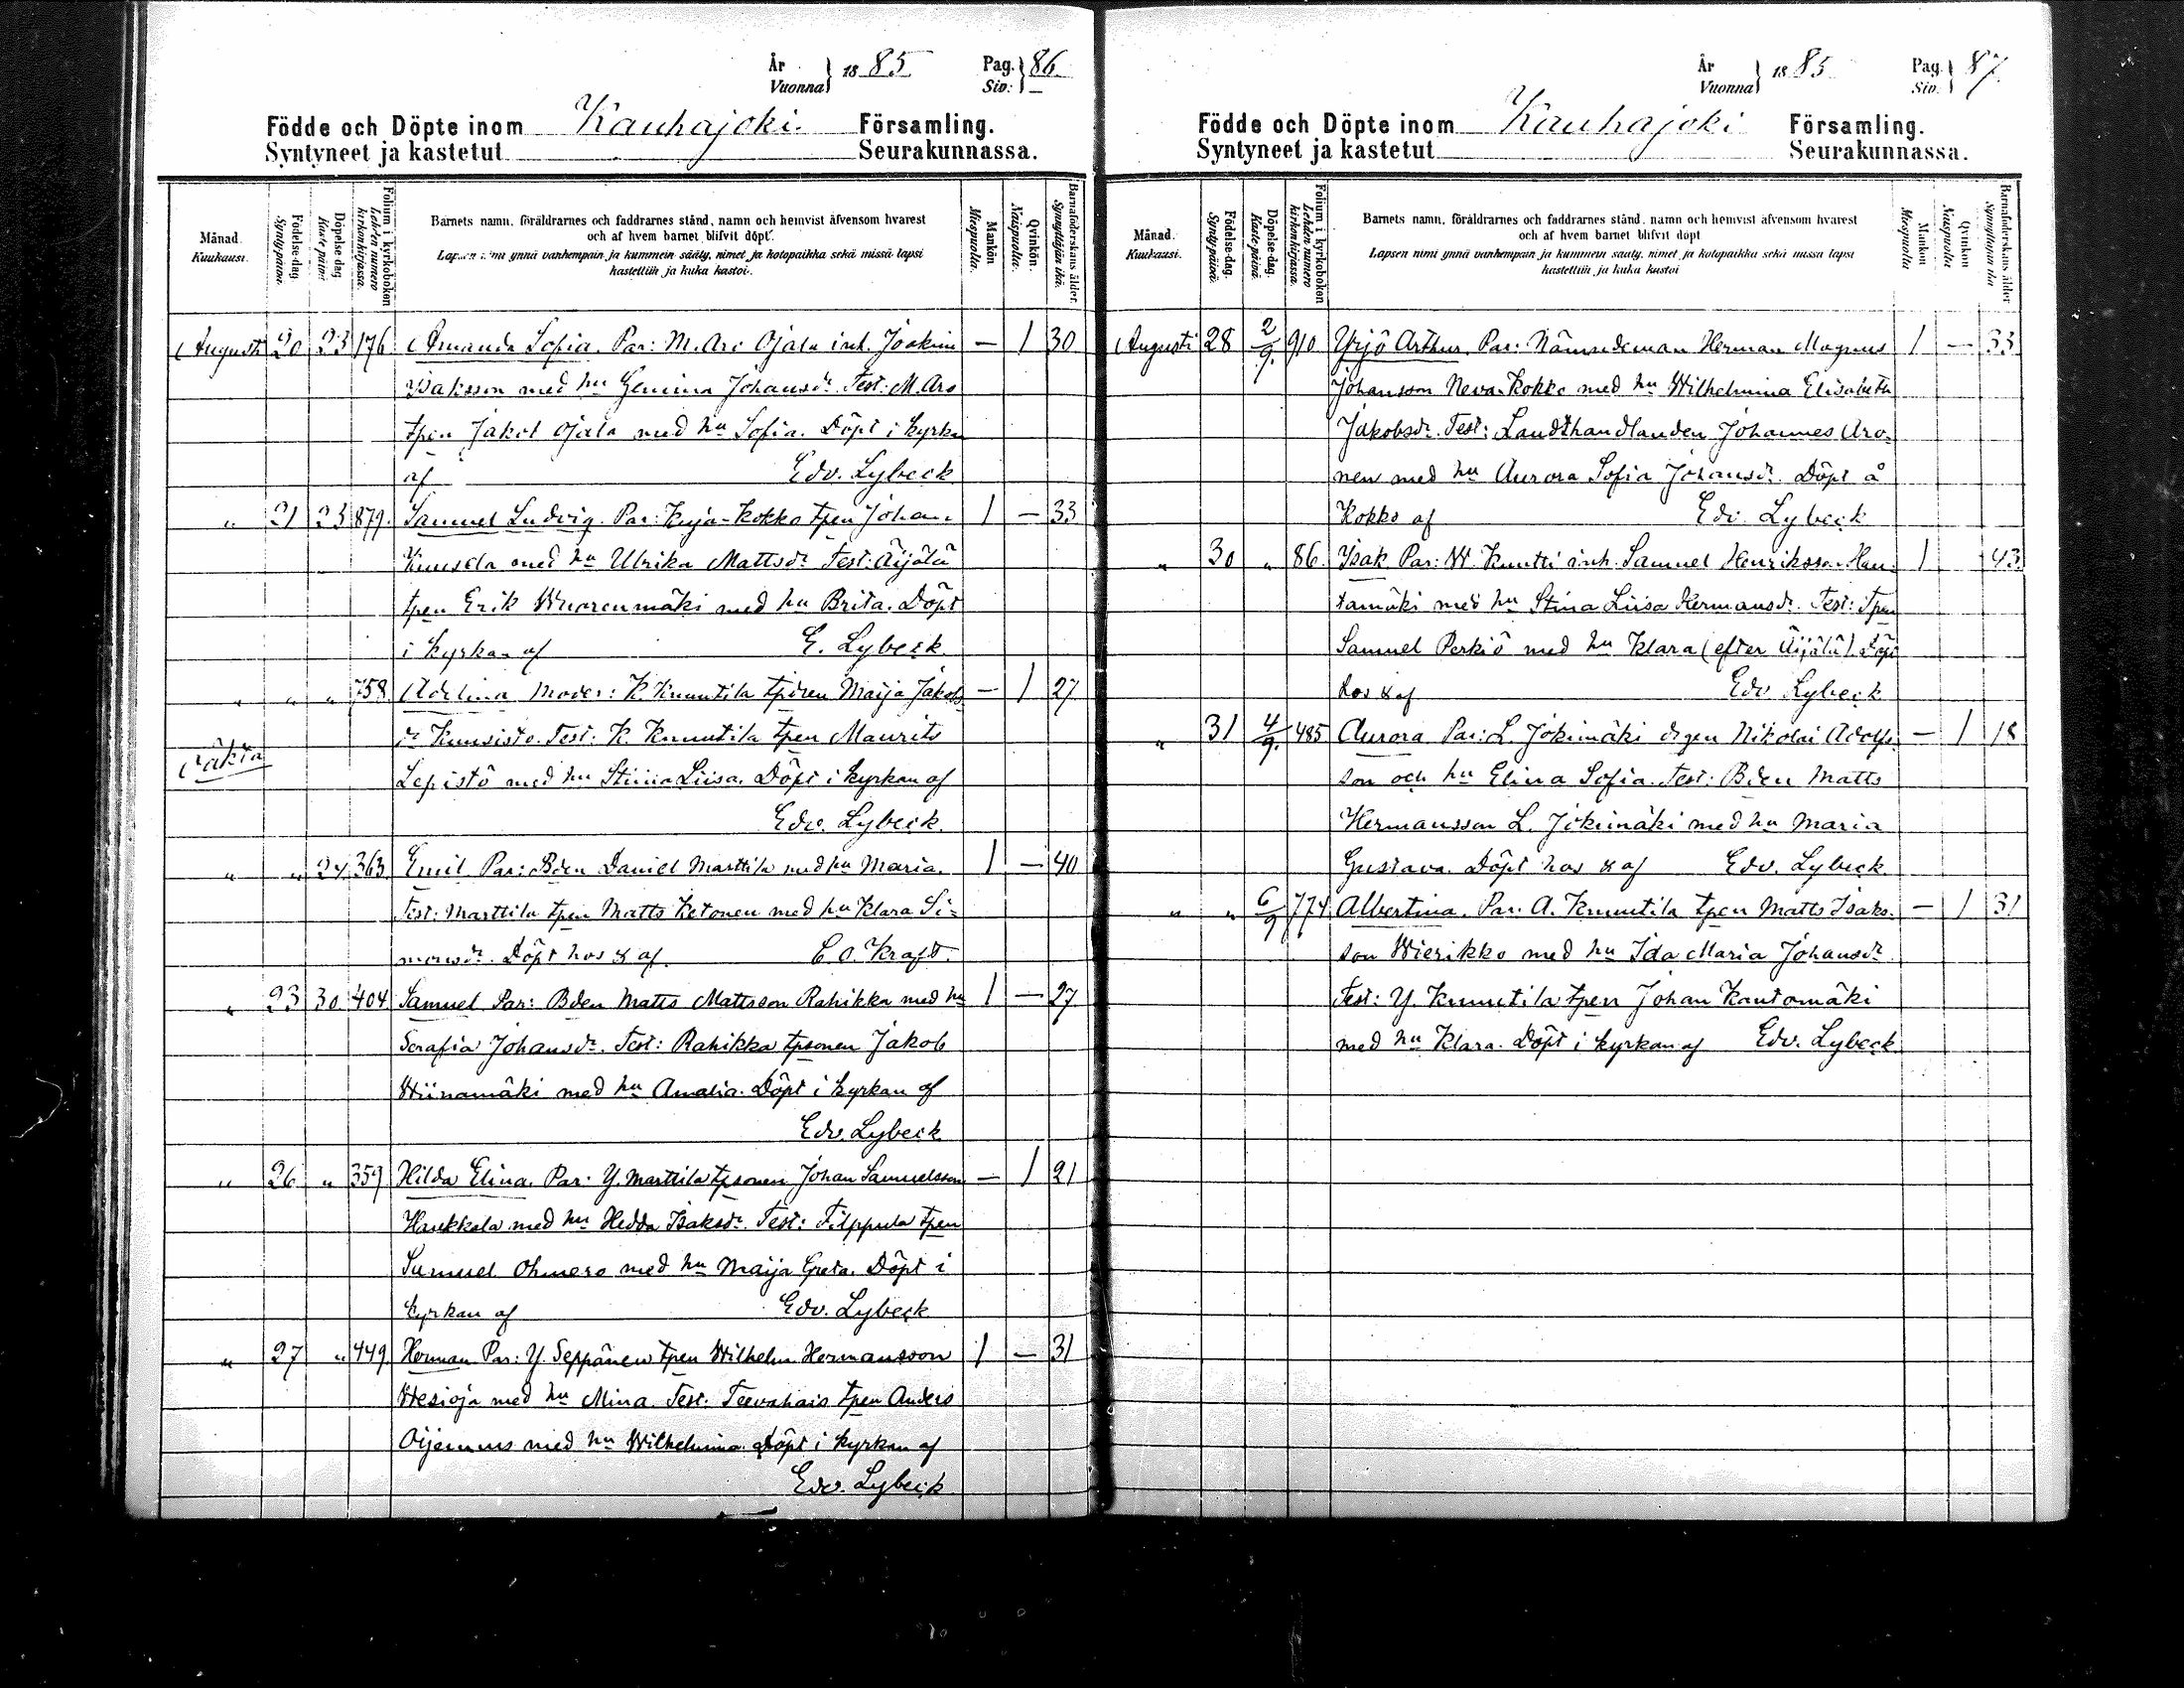 År
Vuonna } 1885. Pag.
Siv: } 86.
Födde och Döpte inom Kauhajoki. Församling.
Syntyneet ja kastetut Seurakunnassa.
Månad. Kuukausi.
Födelse-dag. Syntypäivä.
Döpelse-dag. Kaste-päivä.
Folium i kyrkoboken Lehden numero kirkonkirjassa.
Barnets namn, föräldrarnes och faddrarnes stånd, namn och hemvist äfvensom hvarest
och af hvem barnet blifvit döpt.
Lapsen nimi ynnä vanhempain ja kummein sääty, nimet ja kotopaikka sekä missä lapsi
kastettiin ja kuka kastoi.
Mankön Miespuolia.
Qvinkön. Naispuolia.
Barnaföderskans ålder. Synnyttäjän ikä.
Augusti 20 23 176 Amanda Sofia. Par: M. Aro Ojala inh. Joakim — 1 30
Isaksson med hu Gemima Johansdr. Test: M. Aro
tpen Jakob Ojala med hu Sofia. Döpt i kyrkan
af Edv. Lybeck
" 21 23 879. Samuel Ludvig. Par: Kuja-Kokko tpen Johan 1 — 33
Kuusela med hu Ulrika Mattsdr Test: Äijälä
tpen Erik Wuorenmäki med hu Brita. Döpt
i kyrkan af E. Lybeck
" " " 758. Adelina Moder: K. Knuutila tpdren Maija Jakobs — 1 27
dr Kuusisto. Test: K. Knuutila tpen Maurits
oäkta
Lepistö med hu Stiina Liisa. Döpt i kyrkan af
Edv. Lybeck.
" " 24 363 Emil Par: Bden Daniel Marttila med hu Maria. 1 — 40
Test: Marttila tpen Matts Ketonen med hu Klara Si-
monsdr. Döpt hos & af. C. O. Kraft.
" 23 30 404 Samuel Par: Bden Matts Mattsson Rahikka med hu 1 — 27
Serafia Johansdr. Test: Rahikka tpsonen Jakob
Wiinamäki med hu Amalia. Döpt i kyrkan af
Edv. Lybeck
" 26 " 359 Hilda Elina. Par: Y. Marttila tpsonen Johan Samuelsson — 1 21
med hu Hedda Isaksdr. Test: Filppula tpen
Samuel Ohmero med hu Maija Greta. Döpt i
kyrkan af Edv. Lybeck
" 27 " 449 Herman Par: Y. Seppänen tpen Wilhelm Hermansson 1 — 31
Wesioja med hu Mina. Test: Teevahais tpen Anders
med hu Wilhelmina. Döpt i kyrkan af
Edv. Lybeck
År
Vuonna } 1885 Pag.
Siv. } 87.
Födde och Döpte inom Kauhajoki Församling.
Syntyneet ja kastetut Seurakunnassa.
Månad. Kuukausi.
Födelse-dag. Syntypäivä.
Döpelse-dag. Kaste-päivä.
Folium i kyrkoboken Lehden numero kirkonkirjassa.
Barnets namn, föräldrarnes och faddrarnes stånd, namn och hemvist äfvensom hvarest
och af hvem barnet blifvit döpt
Lapsen nimi ynnä vanhempain ja kummein sääty, nimet ja kotopaikka sekä missä lapsi
kastettiin ja kuka kastoi
Mankön Miespuolia
Qvinkön Naispuolia
Barnaföderskans ålder Synnyttäjän ikä
Augusti 28 2/9. 910 Yrjö Arthur. Par: Nämndeman Herman Magnus 1 — 33
Johansson Neva-Kokko med hu Wilhelmina Elisabeth
Jakobsdr. Test: Landthandlanden Johannes Aro-
nen med hu Aurora Sofia Johansdr. Döpt å
Kokko af Edv. Lybeck
" 30 " 86. Isak Par: W. Knutti inh. Samuel Henriksson Hau- 1 43
tamäki med hu Stina Liisa Hermansdr. Test: Tpen
Samuel Perkiö med hu Klara (efter Äijälä). Döpt
hos & af Edv Lybeck
" 31 4/9. 485 Aurora Par: L. Jokimäki drgen Nikolai Adolfs- — 1 18
son och hu Elina Sofia. Test: Bden Matts
Hermansson L. Jokimäki med hu Maria
Gustava. Döpt hos & af Edv. Lybeck
" " 6/9 774 Albertina. Par: A. Knuutila tpen Matts Isaks- — 1 31
son Wierikko med hu Ida Maria Johansdr
Test: Y. Knuutila tpen Johan Kantomäki
med hu Klara. Döpt i kyrkan af Edv. Lybeck